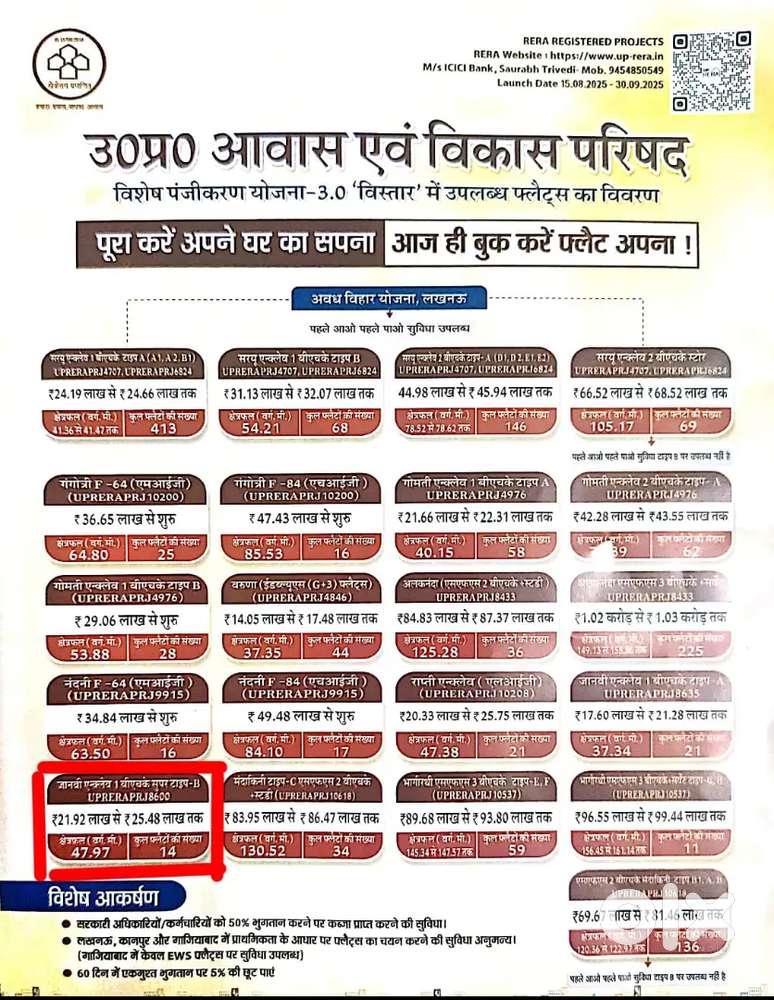 RERA REGISTERED PROJECTS
RERA Website : https://www.up-rera.in
M/s ICICI Bank, Saurabh Trivedi- Mob. 9454850549
Launch Date 15.08.2025 - 30.09.2025
उ0प्र0 आवास एवं विकास परिषद
विशेष पंजीकरण योजना-3.0 'विस्तार' में उपलब्ध फ्लैट्स का विवरण
पूरा करें अपने घर का सपना आज ही बुक करें फ्लैट अपना !
अवध विहार योजना, लखनऊ
पहले आओ पहले पाओ सुविधा उपलब्ध
सरयू एन्क्लेव 1 बीएचके टाइप A (A1, A 2, B1)
UPRERAPRJ4707, UPRERAPRJ6824
₹24.19 लाख से ₹24.66 लाख तक
क्षेत्रफल ( वर्ग. मी.) कुल फ्लैटों की संख्या
41.36 से 41.47 तक 413
सरयू एन्क्लेव 1 बीएचके टाइप B
UPRERAPRJ4707, UPRERAPRJ6824
₹31.13 लाख से ₹32.07 लाख तक
क्षेत्रफल ( वर्ग. मी.) कुल फ्लैटों की संख्या
54.21 68
सरयू एन्क्लेव 2 बीएचके टाइप- A (D1, D2, E1, E2)
UPRERAPRJ4707, UPRERAPRJ6824
44.98 लाख से ₹45.94 लाख तक
क्षेत्रफल ( वर्ग. मी.) कुल फ्लैटों की संख्या
78.52 से 78.62 तक 146
सरयू एन्क्लेव 2 बीएचके स्टोर
UPRERAPRJ4707, UPRERAPRJ6824
₹66.52 लाख से ₹68.52 लाख तक
क्षेत्रफल ( वर्ग. मी.) कुल फ्लैटों की संख्या
105.17 69
पहले आओ पहले पाओ सुविधा टाइप B पर उपलब्ध नहीं है
गंगोत्री F -64 (एमआईजी)
(UPRERAPRJ10200)
₹36.65 लाख से शुरु
क्षेत्रफल ( वर्ग. मी.) कुल फ्लैटों की संख्या
64.80 25
गंगोत्री F -84 (एचआईजी)
(UPRERAPRJ10200)
₹47.43 लाख से शुरु
क्षेत्रफल ( वर्ग. मी.) कुल फ्लैटों की संख्या
85.53 16
गोमती एन्क्लेव 1 बीएचके टाइप A
UPRERAPRJ4976
₹21.66 लाख से ₹22.31 लाख तक
क्षेत्रफल ( वर्ग. मी.) कुल फ्लैटों की संख्या
40.15 58
गोमती एन्क्लेव 2 बीएचके टाइप- A
UPRERAPRJ4976
₹42.28 लाख से ₹43.55 लाख तक
क्षेत्रफल ( वर्ग. मी.) कुल फ्लैटों की संख्या
62
गोमती एन्क्लेव 1 बीएचके टाइप B
(UPRERAPRJ4976)
₹29.06 लाख से शुरु
क्षेत्रफल ( वर्ग. मी.) कुल फ्लैटों की संख्या
53.88 28
वरुणा (ईडब्ल्यूएस (G+3) फ्लैट्स)
(UPRERAPRJ4846)
₹14.05 लाख से ₹17.48 लाख तक
क्षेत्रफल ( वर्ग. मी.) कुल फ्लैटों की संख्या
37.35 44
अलकनंदा (एसएफएस 2 बीएचके +स्टडी )
UPRERAPRJ8433
₹84.83 लाख से ₹87.37 लाख तक
क्षेत्रफल ( वर्ग. मी.) कुल फ्लैटों की संख्या
125.28 36
एसएफएस 3 बीएचके
UPRERAPRJ8433
₹1.02 करोड़ से ₹1.03 करोड़ तक
क्षेत्रफल ( वर्ग. मी.) कुल फ्लैटों की संख्या
225
नंदनी F -64 (एमआईजी)
(UPRERAPRJ9915)
₹34.84 लाख से शुरु
क्षेत्रफल ( वर्ग. मी.) कुल फ्लैटों की संख्या
63.50 16
नंदनी F -84 (एचआईजी)
(UPRERAPRJ9915)
₹49.48 लाख से शुरु
क्षेत्रफल ( वर्ग. मी.) कुल फ्लैटों की संख्या
84.10 17
राप्ती एन्क्लेव ( एलआईजी)
(UPRERAPRJ10208)
₹20.33 लाख से ₹25.75 लाख तक
क्षेत्रफल ( वर्ग. मी.) कुल फ्लैटों की संख्या
47.38 21
जानवी एन्क्लेव 1 बीएचके टाइप- A
UPRERAPRJ8635
₹17.60 लाख से ₹21.28 लाख तक
क्षेत्रफल ( वर्ग. मी.) कुल फ्लैटों की संख्या
37.34 21
जानवी एन्क्लेव 1 बीएचके सुपर टाइप-B
UPRERAPRJ8600
₹21.92 लाख से ₹25.48 लाख तक
क्षेत्रफल ( वर्ग. मी.) कुल फ्लैटों की संख्या
47.97 14
मंदाकिनी टाइप-C एसएफएस 2 बीएचके
+स्टडी (UPRERAPRJ10618)
₹83.95 लाख से ₹86.47 लाख तक
क्षेत्रफल ( वर्ग. मी.) कुल फ्लैटों की संख्या
130.52 34
भागीरथी एसएफएस 3 बीएचके टाइप- E, F
(UPRERAPRJ10537)
₹89.68 लाख से ₹93.80 लाख तक
क्षेत्रफल ( वर्ग. मी.) कुल फ्लैटों की संख्या
145.34 से 147.57 तक 59
भागीरथी एसएफएस 3 बीएचके
(UPRERAPRJ10537)
₹96.55 लाख से ₹99.44 लाख तक
क्षेत्रफल ( वर्ग. मी.) कुल फ्लैटों की संख्या
156.45 से 161.14 तक 11
विशेष आकर्षण
एसएफएस 2 बीएचके मंदाकिनी टाइप B1, A, B
UPRERAPRJ10618
₹69.67 लाख से ₹81.46 लाख तक
क्षेत्रफल ( वर्ग. मी.) कुल फ्लैटों की संख्या
120.36 से 122.97 तक 136
पहले आओ पहले पाओ सुविधा टाइप B पर उपलब्ध नहीं है
• सरकारी अधिकारियों/कर्मचारियों को 50% भुगतान करने पर कब्जा प्राप्त करने की सुविधा।
• लखनऊ, कानपुर और गाजियाबाद में प्राथमिकता के आधार पर फ्लैट्स का चयन करने की सुविधा अनुमन्य।
(गाजियाबाद में केवल EWS फ्लैट्स पर सुविधा उपलब्ध)
• 60 दिन में एकमुश्त भुगतान पर 5% की छूट पाएं
olx